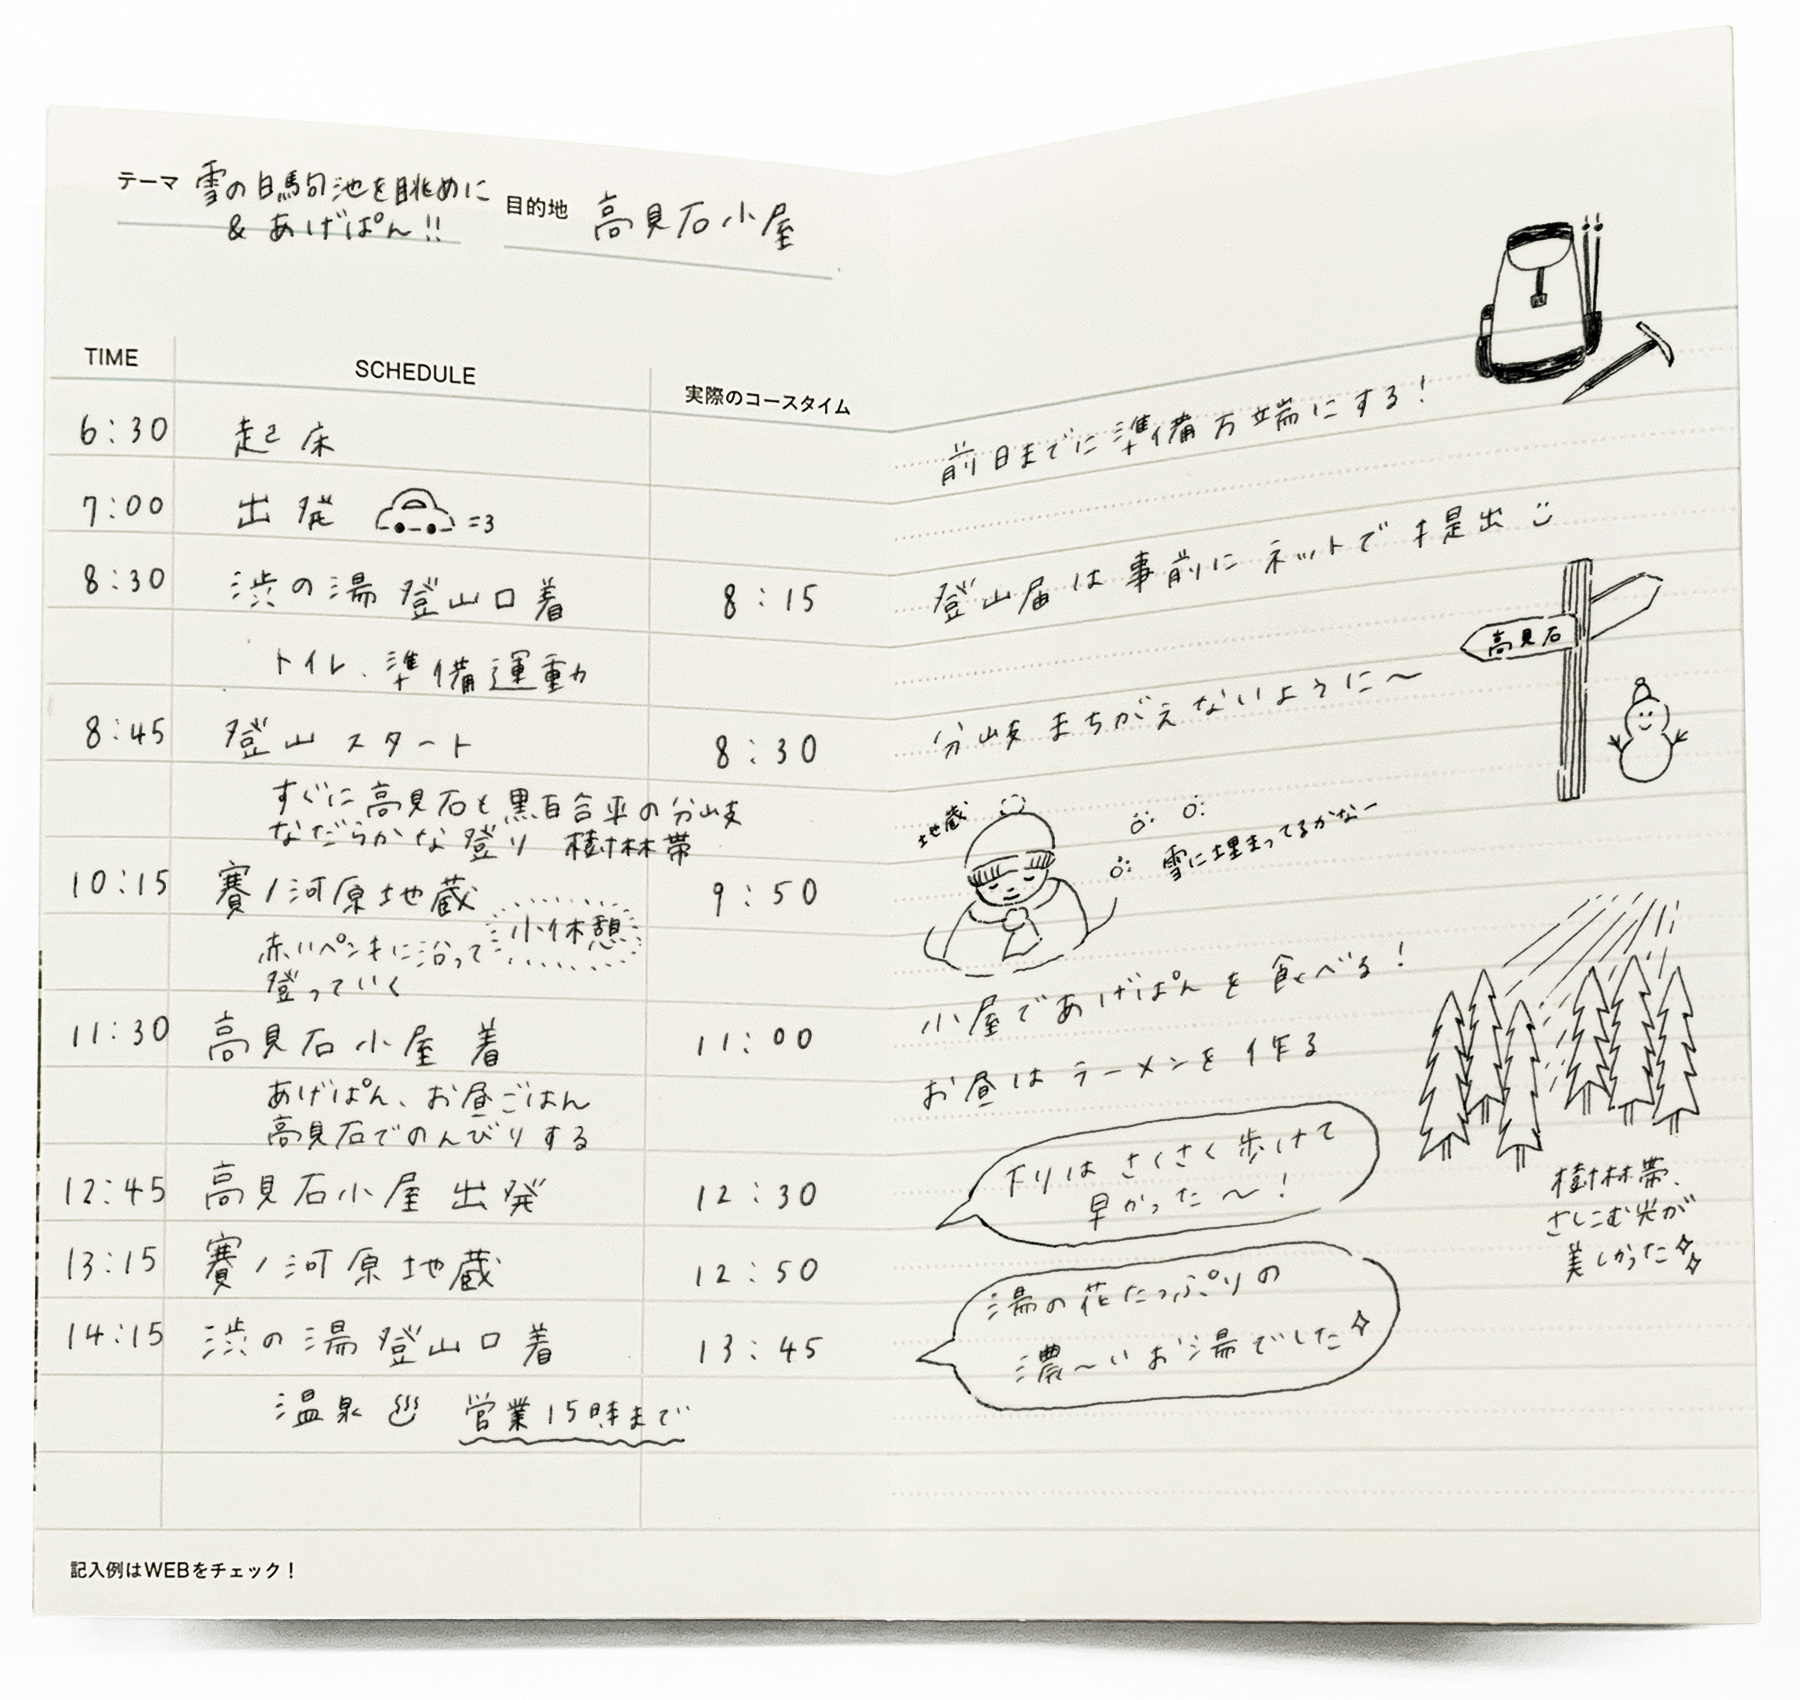 テーマ 雪の白駒池を眺めに
& あげぱん!!
目的地 高見石小屋
TIME SCHEDULE 実際のコースタイム
6:30 起床
7:00 出発 =3
8:30 渋の湯 登山口着 8:15
トイレ、準備運動
8:45 登山スタート 8:30
すぐに高見石と黒百合平の分岐
なだらかな登り 樹林帯
10:15 賽ノ河原地蔵 9:50
小休憩
赤いペンキに沿って
登っていく
11:30 高見石小屋 着 11:00
あげぱん、お昼ごはん
高見石でのんびりする
12:45 高見石小屋 出発 12:30
13:15 賽ノ河原地蔵 12:50
14:15 渋の湯 登山口着 13:45
温泉 営業15時まで
記入例はWEBをチェック!
前日までに準備万端にする!
登山届は事前にネットで提出
高見石
分岐まちがえないように〜
地蔵
雪に埋まってるかなー
小屋であげぱんを食べる!
お昼はラーメンを作る
下りはさくさく歩けて
早かった〜!
樹林帯、
さしこむ光が
美しかった
湯の花たっぷりの
濃〜いお湯でした